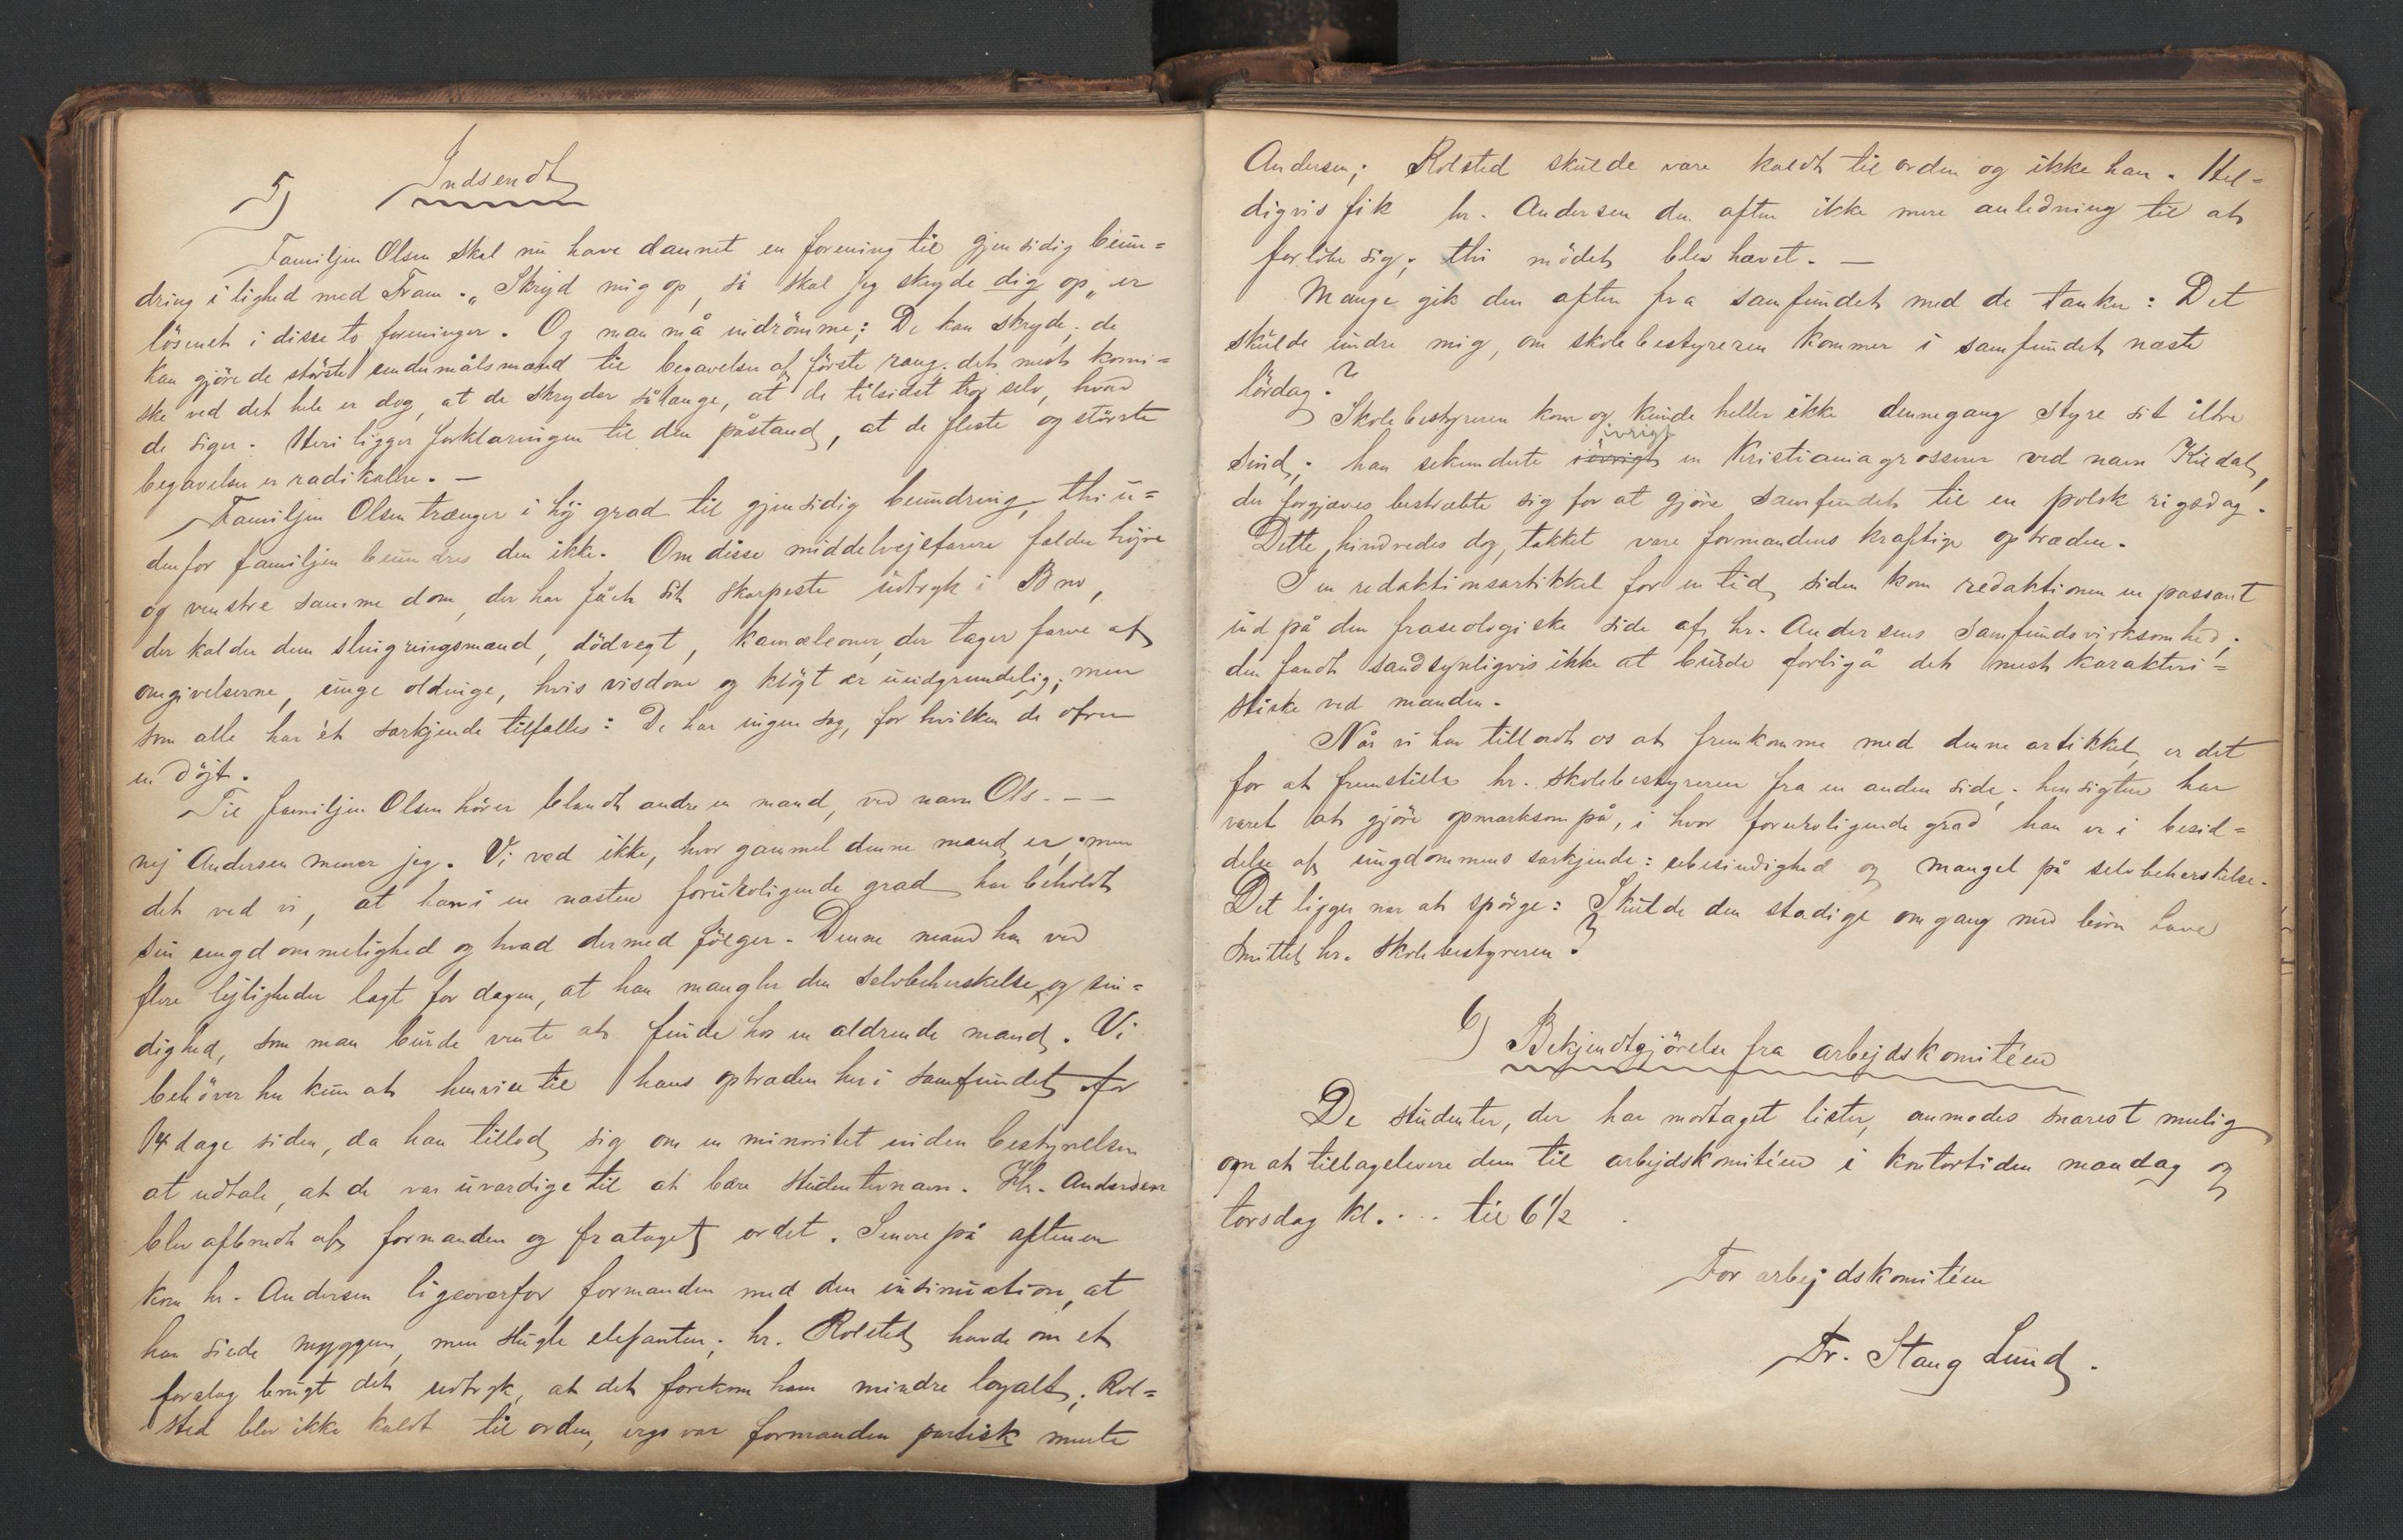 5) Indsendt
Familjen Olsen skal nu have dannet en forening til gjensidig beun=
dring i lighed med Fram. „Skryd mig op, så skal jeg skryde dig op„ er
løsenet i disse to foreninger. Og man må indrømme: De kan skryde; de
kan gjøre de største endumålsmænd til begavelser af første rang. det mest komi=
ske ved det hele er dog, at de skryder sålænge, at de tilsidst tror selv, hvad
de siger. Heri ligger forklaringen til den påstand, at de fleste og største
begavelser er radikalere. —
Familjen Olsen trænger i høj grad til gjensidig beundring, thi u=
denfor familjen beundres den ikke. Om disse middelvejsfarere fælder højre
og venstre samme dom, der har fået sit skarpeste udtryk i Bno,
der kalder dem slingringsmænd, dødvegt, kamæleoner, der tager farve af
omgivelserne, unge oldinge, hvis visdom og kløgt er uudgrundelig; men
som alle har ét særkjende tilfælles: De har ingen sag, for hvilken de ofrer
en døjt.
Til familjen Olsen hører blandt andre en mand, ved navn Ols. — —
nej Andersen mener jeg. Vi ved ikke, hvor gammel denne mand er, men
det ved vi, at han i en næsten foruroligende grad har beholdt
sin ungdommelighed og hvad dermed følger. Denne mand har ved
flere lejligheder lagt for dagen, at han mangler den selvbeherskelse og sin=
dighed, som man burde vente at finde hos en aldrende mand. Vi
behøver her kun at henvise til hans optræden her i samfundet for
14 dage siden, da han tillod sig om en minoritet inden bestyrelsen
at udtale, at de var uværdige til at bære studenternavn. Hr. Andersen
blev afbrudt af formanden og frataget ordet. Senere på aftenen
kom hr. Andersen ligeoverfor formanden med den insinuation, at
han siede myggen, men slugte elefanten; hr. Rolsted havde om et
forslag brugt det udtryk, at det forekom ham mindre loyalt; Rol=
sted blev ikke kaldt til orden, ergo var formanden partisk mente
Andersen; Rolsted skulde være kaldt til orden og ikke han. Hel=
digvis fik hr. Andersen den aften ikke mere anledning til at
forløbe sig; thi mødet blev hævet. —
Mange gik den aften fra samfundet med de tanker: Det
skulde undre mig, om skolebestyreren kommer i samfundet næste
lørdag?
Skolebestyreren kom og kunde heller ikke dennegang styre sit iltre
ivrigt
sind; han sekunderte iøvrigt en Kristianiagrosserer ved navn Kildal,
der forgjæves bestræbte sig for at gjøre samfundet til en polsk rigsdag.
Dette hindredes dog, takket være formandens kraftige optræden.
I en redaktionsartikkel for en tid siden kom redaktionen en passant
ind på den fraseologiske side af hr. Andersens samfundsvirksomhed;
den fandt sandsynligvis ikke at burde forbigå det mest karakteri=
stiske ved manden.
Når vi har tilladt os at fremkomme med denne artikkel, er det
for at fremstille hr. skolebestyreren fra en anden side; hensigten har
været at gjøre opmærksom på, i hvor foruroligende grad han er i besid=
delse af ungdommens særkjende: ubesindighed og mangel på selvbeherskelse.
Det ligger nær at spørge: Skulde den stadige omgang med børn have
smittet hr. skolebestyreren?
6) Bekjendtgjørelse fra arbejdskomitéen
De studenter, der har modtaget lister, anmodes snarest mulig
om at tilbagelevere dem til arbejdskomitéen i kontortiden mandag og
torsdag kl. . . . til 6 1/2
For arbejdskomitéen
Fr. Stang Lund.